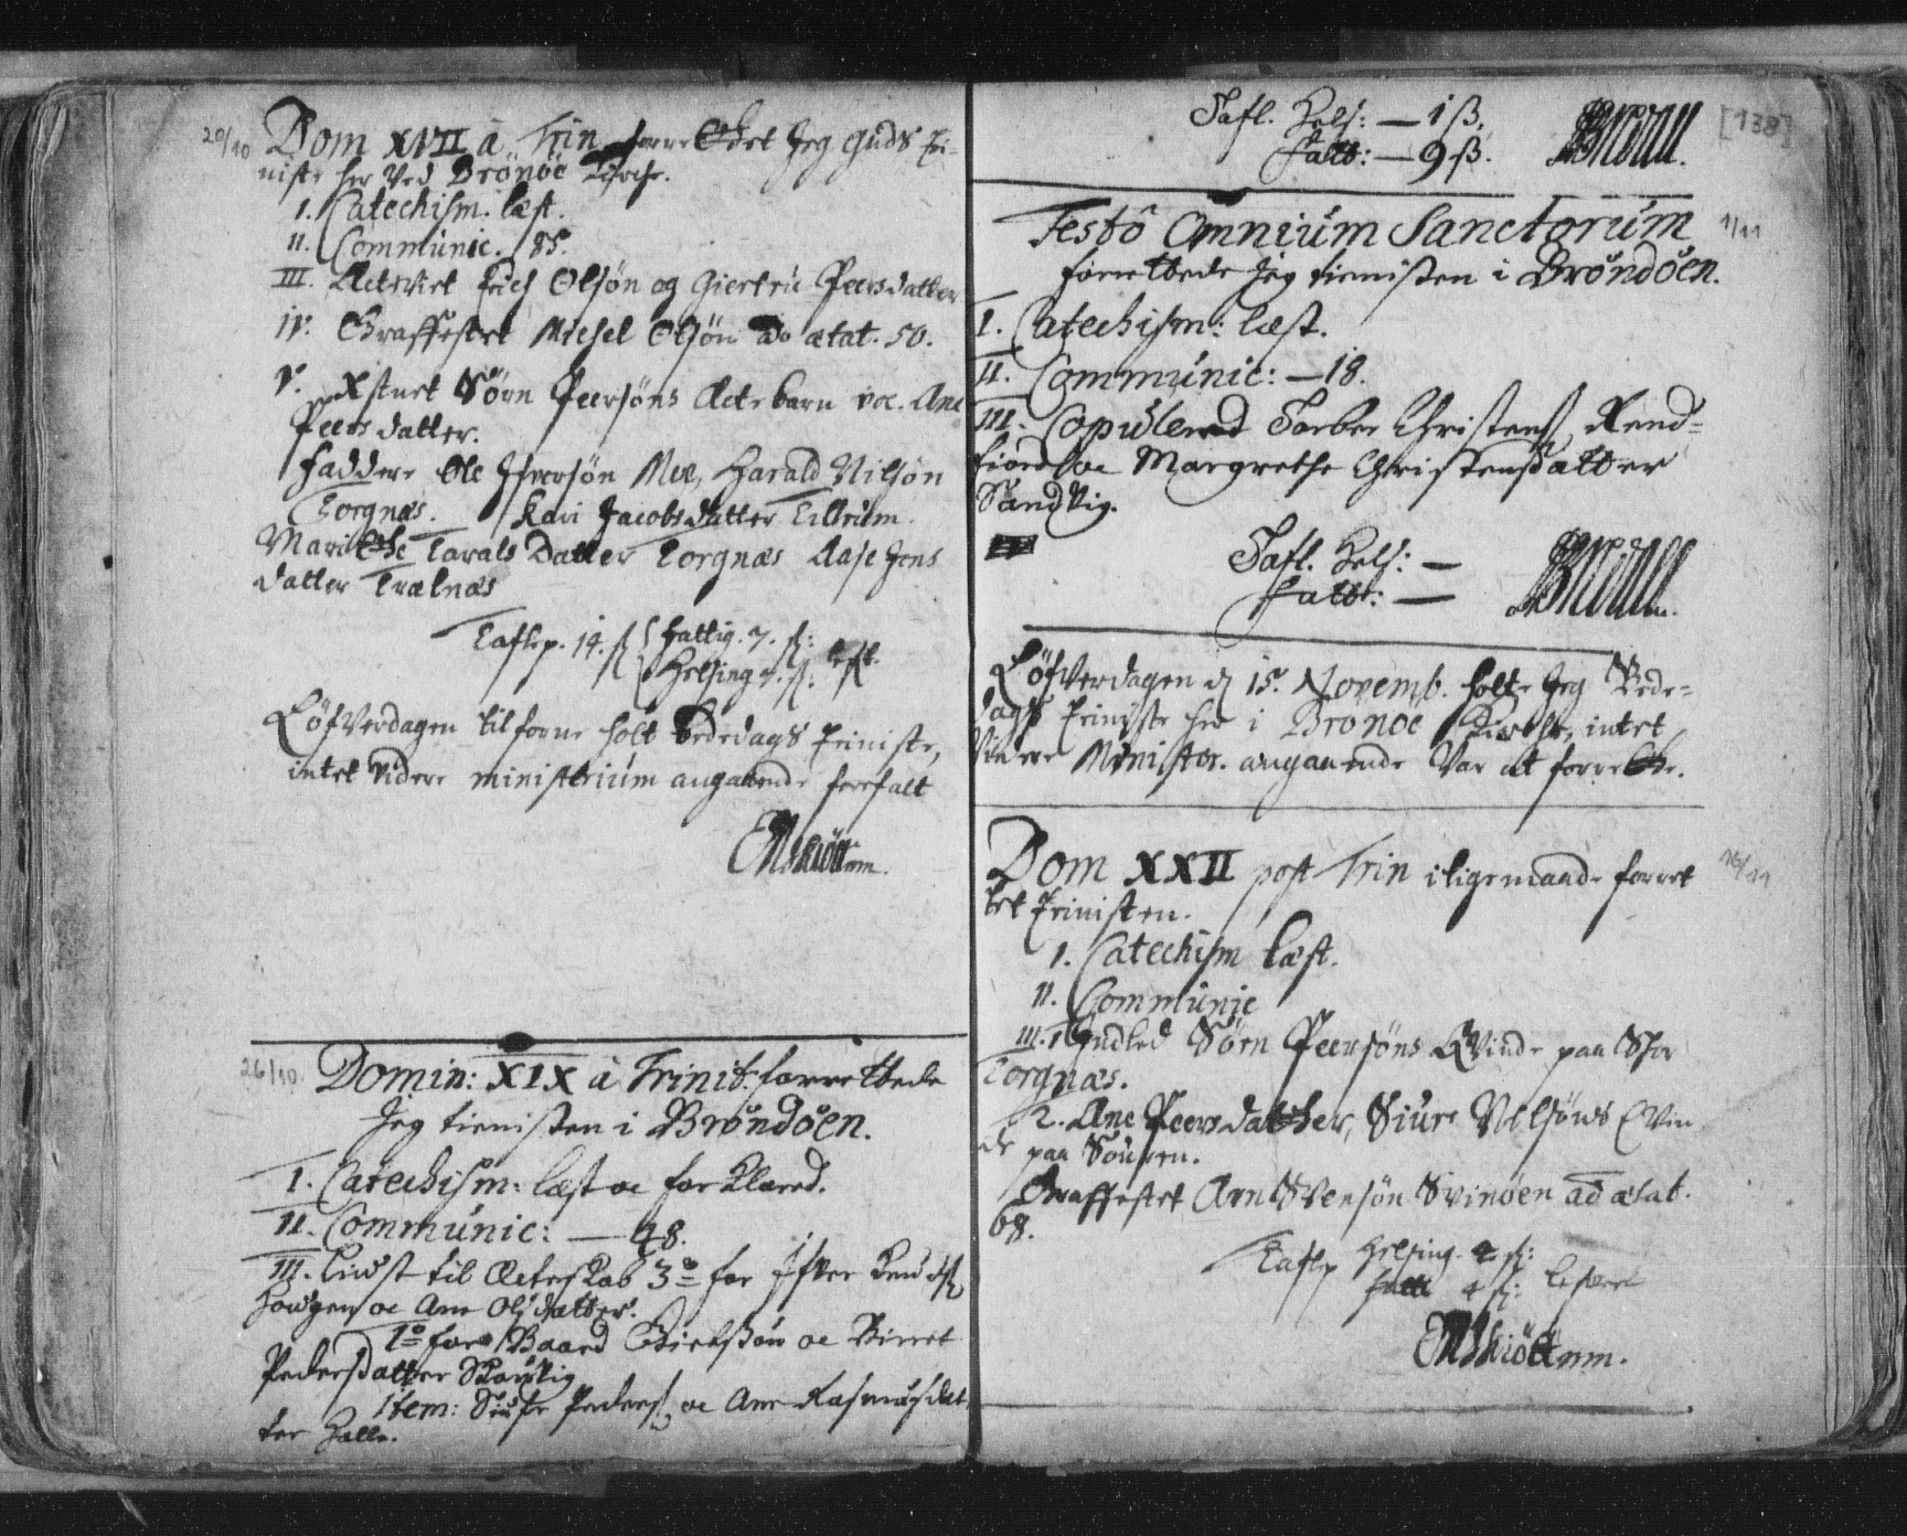 20/10 Dom XVII à Trin forrettet Jeg Guds tie-
niste her ved Brönöe Kirche.
I. Catechism. læst.
II. Communic. 85.
III. Ectevict Erich Olsön og Giertru Peersdatter
IV. Graffestet Michel Olsön ad ætat. 50.
V. Xstnet Sörn Peersöns Ectebarn voc. Ane
Peersdatter.
Faddere Ole Ifversön Moe, Harald Nilsön
Torgnæs. Kari Jacobsdatter Tilrum.
Marithe Taralsdatter Torgnæs Aase Jens
datter Trælnæs
Taflep. 14. ß fattig. 7. ß:
Helsing 7. ß:
Löfverdagen tilforne holt Bededags tieniste,
intet videre ministerium angaaende forefalt
26/10 Domin: XIX à Trinit: forrettede
Jeg tienisten i Bröndöen.
I. Catechism: læst oc forklared.
II. Communic: — 48.
III. Liust til Ecteskab 3º for Ifver Knuds
Hougen oc Ane Olsdatter.
1º for Baard oc Birret
Pedersdatter Skarvig
Item: Siufr Peders: oc Ane Rasmusdat
ter
Tafl. Hels: — 1 ß. [138]
Fatt: — 9 ß.
Festô Omnium Sanctorum 1/11
forrettede Jeg tienisten i Bröndöen.
I. Catechism: læst.
II. Communic: — 18.
III. Copulered Torber Christens: Rend-
fiord oc Margrethe Christensdatter
Sandvig.
Tafl. Hels: —
Fatt: —
Löfverdagen d 15. Novemb. holte Jeg Bede-
dags tieniste her i Brönöe Kirche, intet
videre Minister. angaaende var at forrette.
Dom XXII post Trin iligemaade forret 16/11
tet tienisten.
I. Catechism læst.
II. Communic
III. 1 Indled Sörn Peersöns Qvinde paa Stor
Torgnæs.
2. Ane Peersdather, Siurs Nelsöns Qvin
de paa
Graffestet Arn Svensön Svinöen ad ætat.
68.
Taflp Helsing. 4 ß:
fatt 4 ß: lefvert